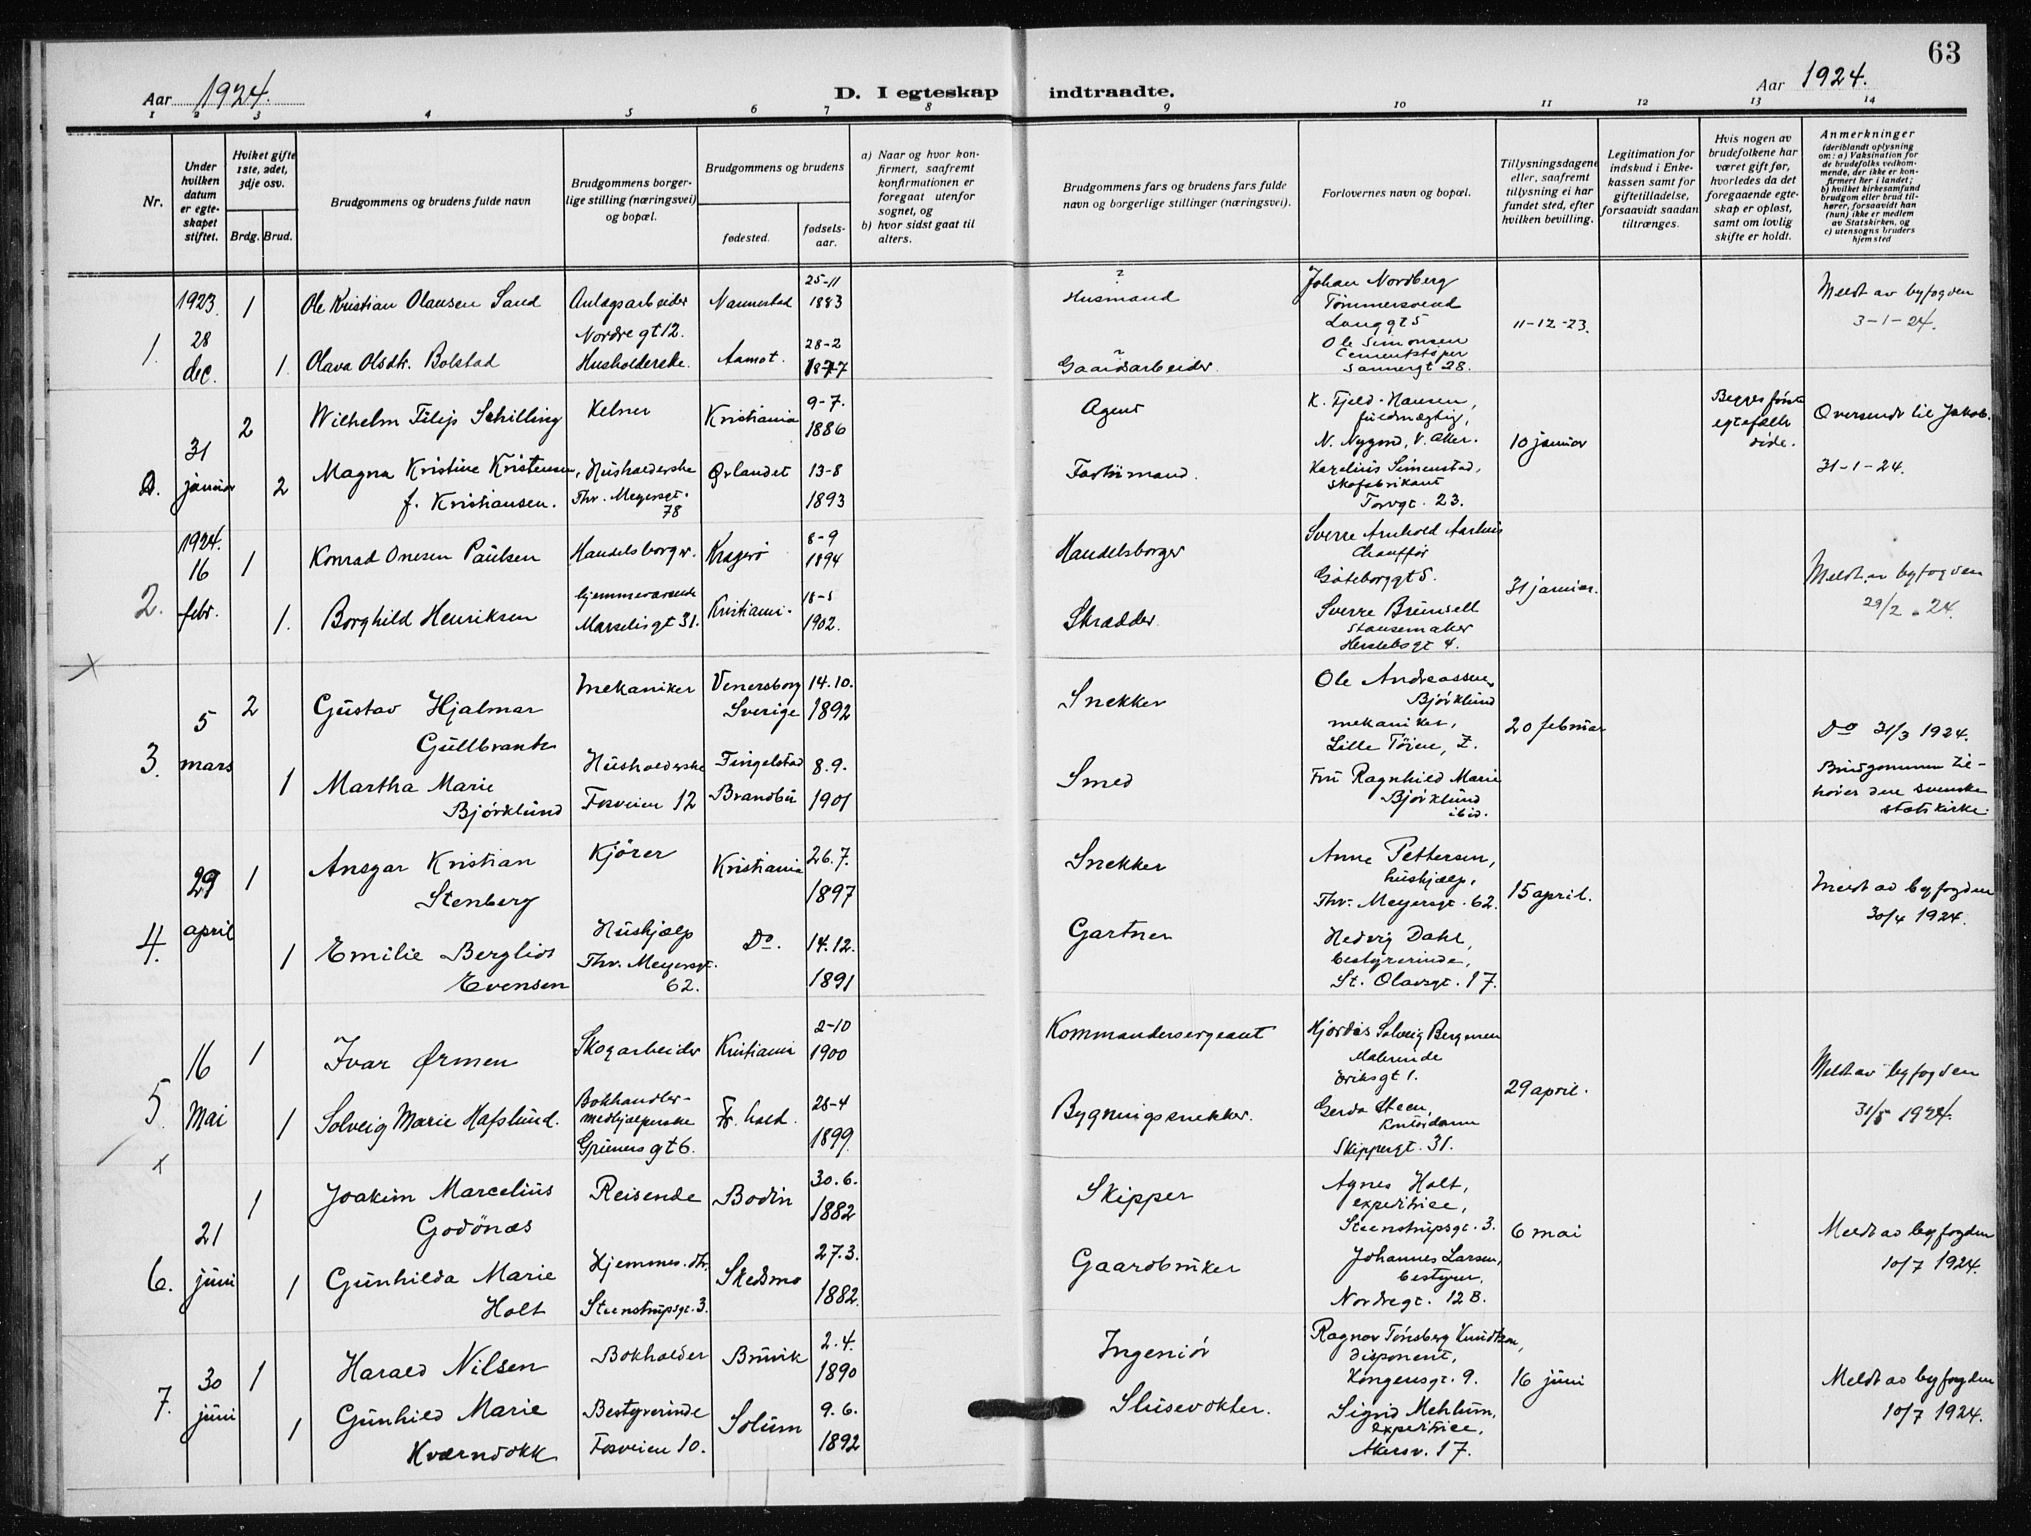 63
Aar 1924.
D. I egteskap indtraadte.
Aar 1924.
1 2 3 4 5 6 7 8 9 10 11 12 13 14
Nr.
Under
hvilken
datum
er egte-
skapet
stiftet.
Hvilket gifte
1ste, 2det,
3dje osv.
Brdg. Brud.
Brudgommens og brudens fulde navn
Brudgommens borger-
lige stilling (næringsvei)
og bopæl.
Brudgommens og brudens
fødested.
fødsels-
aar.
a) Naar og hvor kon-
firmert, saafremt
konfirmationen er
foregaat utenfor
sognet, og
b) hvor sidst gaat til
alters.
Brudgommens fars og brudens fars fulde
navn og borgerlige stillinger (næringsvei).
Forlovernes navn og bopæl.
Tillysningsdagene
eller, saafremt
tillysning ei har
fundet sted, efter
hvilken bevilling.
Legitimation for
indskud i Enke-
kassen samt for
giftetilladelse,
forsaavidt saadan
tiltrænges.
Hvis nogen av
brudefolkene har
været gift før,
hvorledes da det
foregaaende egte-
skap er opløst,
samt om lovlig
skifte er holdt.
Anmerkninger
(deriblandt oplysning
om: a) Vaksination for
de brudefolks vedkom-
mende, der ikke er kon-
firmert her i landet;
b) hvilket kirkesamfund
brudgom eller brud til-
hører, forsaavidt han
(hun) ikke er medlem
av Statskirken, og
c) utensogns bruders
hjemsted
1.
1923
28
dec.
1
Ole Kristian Olausen Sand
Anlægsarbeider
Nordregt 12.
Nannestad
25-11
1883
1.
Olava Olsdtr. Bolstad
Husholderske.
Aamot.
28-2
1877
?
Husmand
?
Gaardsarbeider.
Johan Nordberg
Tømmersvend
Langgt 5
Ole Simonsen
Cementstøper
Sannergt 28.
11-12-23.
Meldt av byfogden
3-1-24.
31
januar
2
Wilhelm Filip Schilling
Kelner
Kristiania
9-7.
1886
2
Magna Kristine Kristensen,
f. Kristiansen.
Husholderske
Thv. Meyersgt.
78
Ørlandet
13-8
1893
Agent
K. Fjeld-Hansen,
fuldmægtig,
N. Nygord, V. Aker.
Karelius Simenstad,
skofabrikant
Torvgt. 23.
10 januar
Begges første
egtefælle
døde.
Oversendt til Jakob.
31-1-24.
2.
1924.
16
febr.
1
Konrad Onesen Paulsen
Handelsborger.
Kragerø
8-9
1894
1.
Borghild Henriksen
hjemmeværende
Marselisgt 31.
1902.
Handelsborger
Skrædder
Sverre Arnhold Aarhus
Chauffør
Gøteborggt 5.
Sverre Brunsell
Stansemaker
Herslebsgt 4.
31 januar.
Meldt av byfogden
29/2 . 24.
3.
5
mars
2
Gustav Hjalmar
Gullbrants
Mekaniker
Venersborg
Sverige
14.10.
1892
1
Martha Marie
Bjørklund
Husholderske
Fosveien 12
Fingelstad
Brandbu
8.9.
1901
Snekker
Smed
Ole Andreassen
Bjørklund
mekaniker,
Lille Tøien, Z.
Fru Ragnhild Marie
Bjørklund
ibid.
20 februar
Do 31/3 1924.
Brudgommen til-
hører den svenske
statskirke.
4.
29
april
1
Ansgar Kristian
Stenberg
Kjører
Kristiania
26.7.
1897
1
Emilie Bergliot
Evensen
Hushjælp
Thv. Meyersgt.
62.
Do.
14.12.
1891
Snekker
Gartner
Anne Pettersen,
hushjælp,
Thv. Meyersgt. 62.
Hedvig Dahl,
bestyrerinde,
St. Olavsgt. 17.
15 april.
Meldt av byfogden
30/4 1924.
5.
16
Mai
1
Ivar Ørmen
Skogarbeider
Kristiani
2-10
1900
1
Solveig Marie Hafslund.
Bokhandler-
medhjælperske
Grünersgt 6.
Fr. hald.
28-4
1899.
Kommandersergeant
Bygningssnekker.
Hjørdis Solveig Bergmen
Malerinde
Eriksgt 1.
Gerda Steen,
Kontordame
Skippergt. 31.
29 april.
Meldt av byfogden
31/5 1924.
6.
21
juni
1
Joakim Marcelius
Godønæs
Reisende
Bodin
30.6.
1882
1
Gunhilda Marie
Holt
Hjemmev. dtr.
Steenstrupsgt. 3.
Skedsmo
27.3.
1882.
Skipper
Gaardbruker
Agnes Holt,
expeditrice,
Steenstrupsgt. 3.
Johannes Larsen,
bestyrer,
Nordregt. 12 B.
6 mai
Meldt av byfogden
10/7 1924.
7.
30
juni
1
Harald Nilsen
Bokholder
Bruvik
2.4.
1890
1
Gunhild Marie
Kværndokk
Bestyrerinde
Fosveien 10.
Solum
9.6.
1892
Ingeniør
Slusevokter.
Ragnar Tønsberg Knudtzon,
disponent,
Kongensgt. 9.
Sigrid Mehlum,
expeditrice,
Akersv. 17.
16 juni
Meldt av byfogden
10/7 1924.